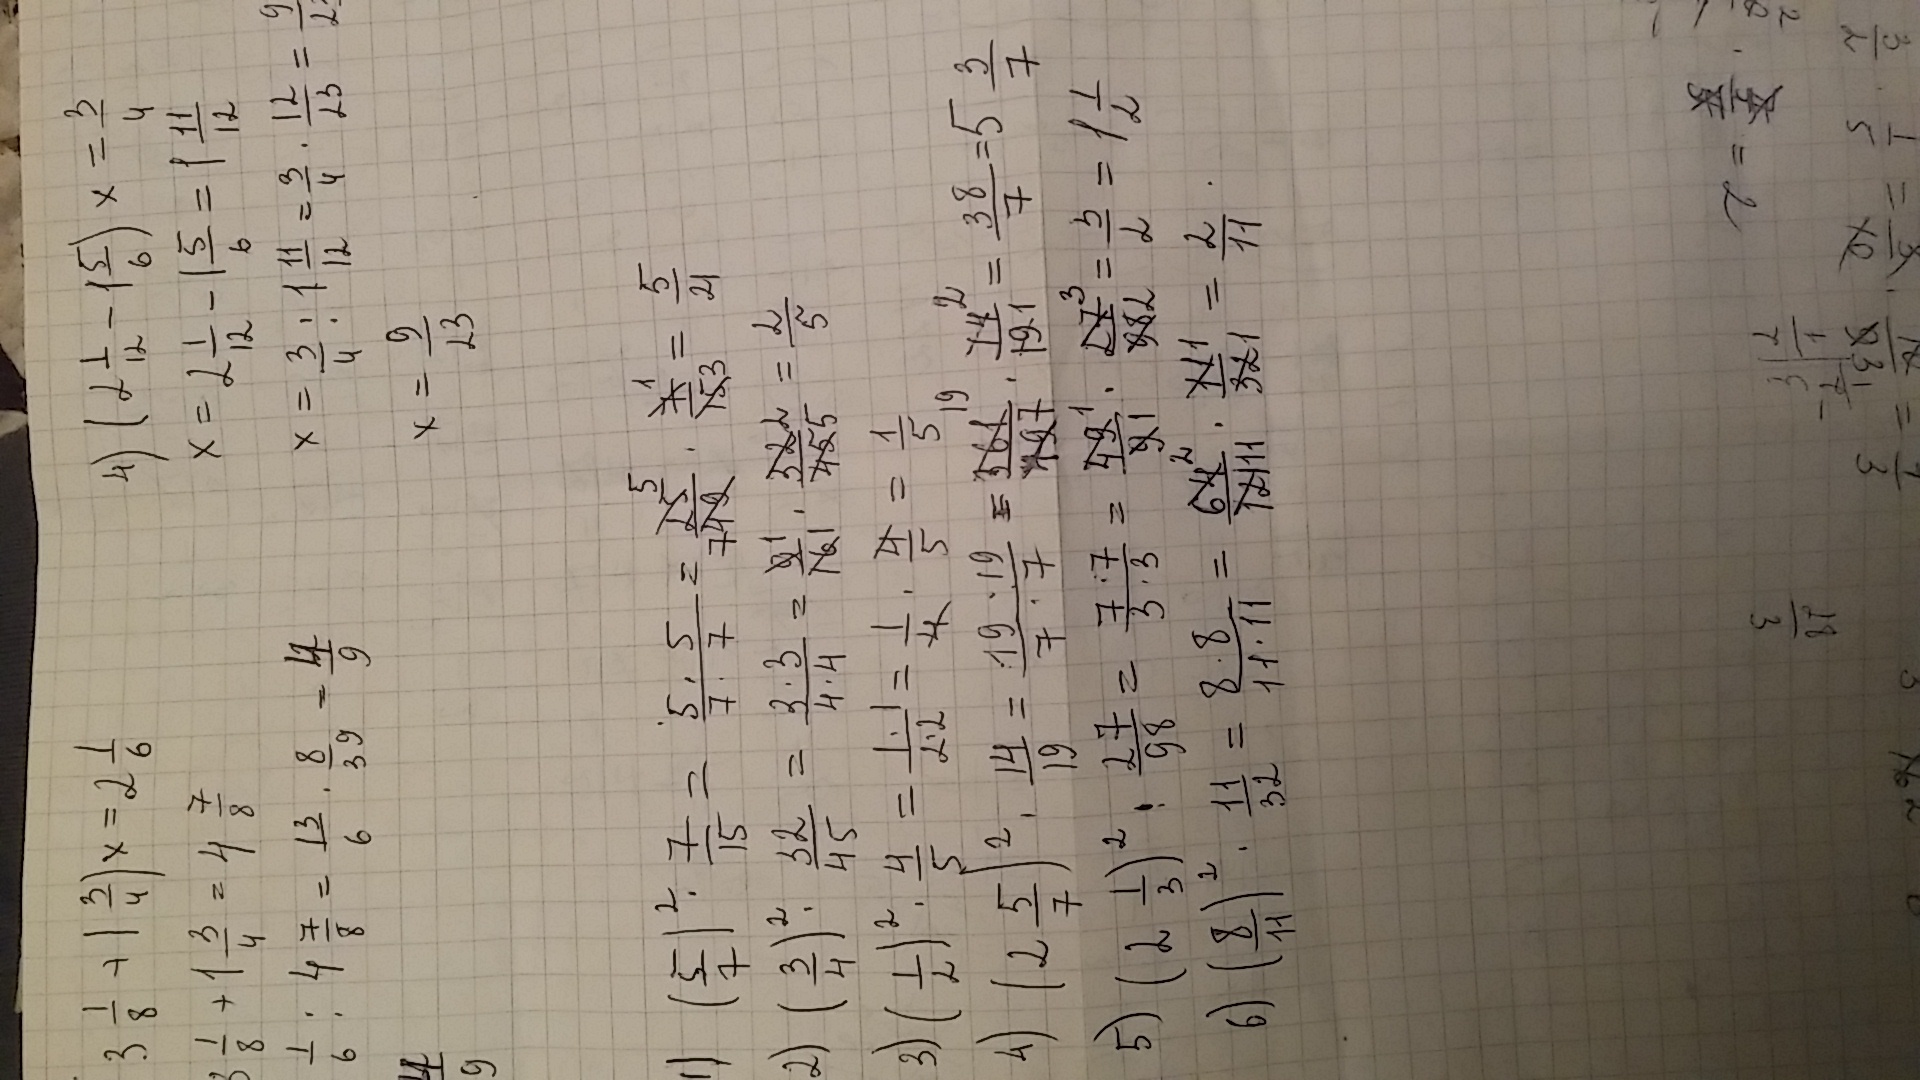 3 1/8 + 1 3/4) x = 2 1/6
3 1/8 + 1 3/4 = 4 7/8
1/6 : 4 7/8 = 13/6 · 8/39 = 4/9
4/9
4) (2 1/12 − 1 5/6) x = 3/4
x = 2 1/12 − 1 5/6 = 1 11/12
x = 3/4 : 1 11/12 = 3/4 · 12/23 = 9/23
x = 9/23
1) (5/7)² · 7/15 = 5·5/7·7 = 25/49 · 7/15 = 5/21
2) (3/4)² · 32/45 = 3·3/4·4 = 9/16 · 32/45 = 2/5
3) (1/2)² · 4/5 = 1·1/2·2 = 1/4 · 4/5 = 1/5
4) (2 5/7)² · 14/19 = 19·19/7·7 = 361/49 · 14/19 = 38/7 = 5 3/7
5) (2 1/3)² · 27/98 = 7·7/3·3 = 49/9 · 27/98 = 3/2 = 1 1/2
6) (8/11)² · 11/32 = 8·8/11·11 = 64/121 · 11/32 = 2/11
= 2
19/3